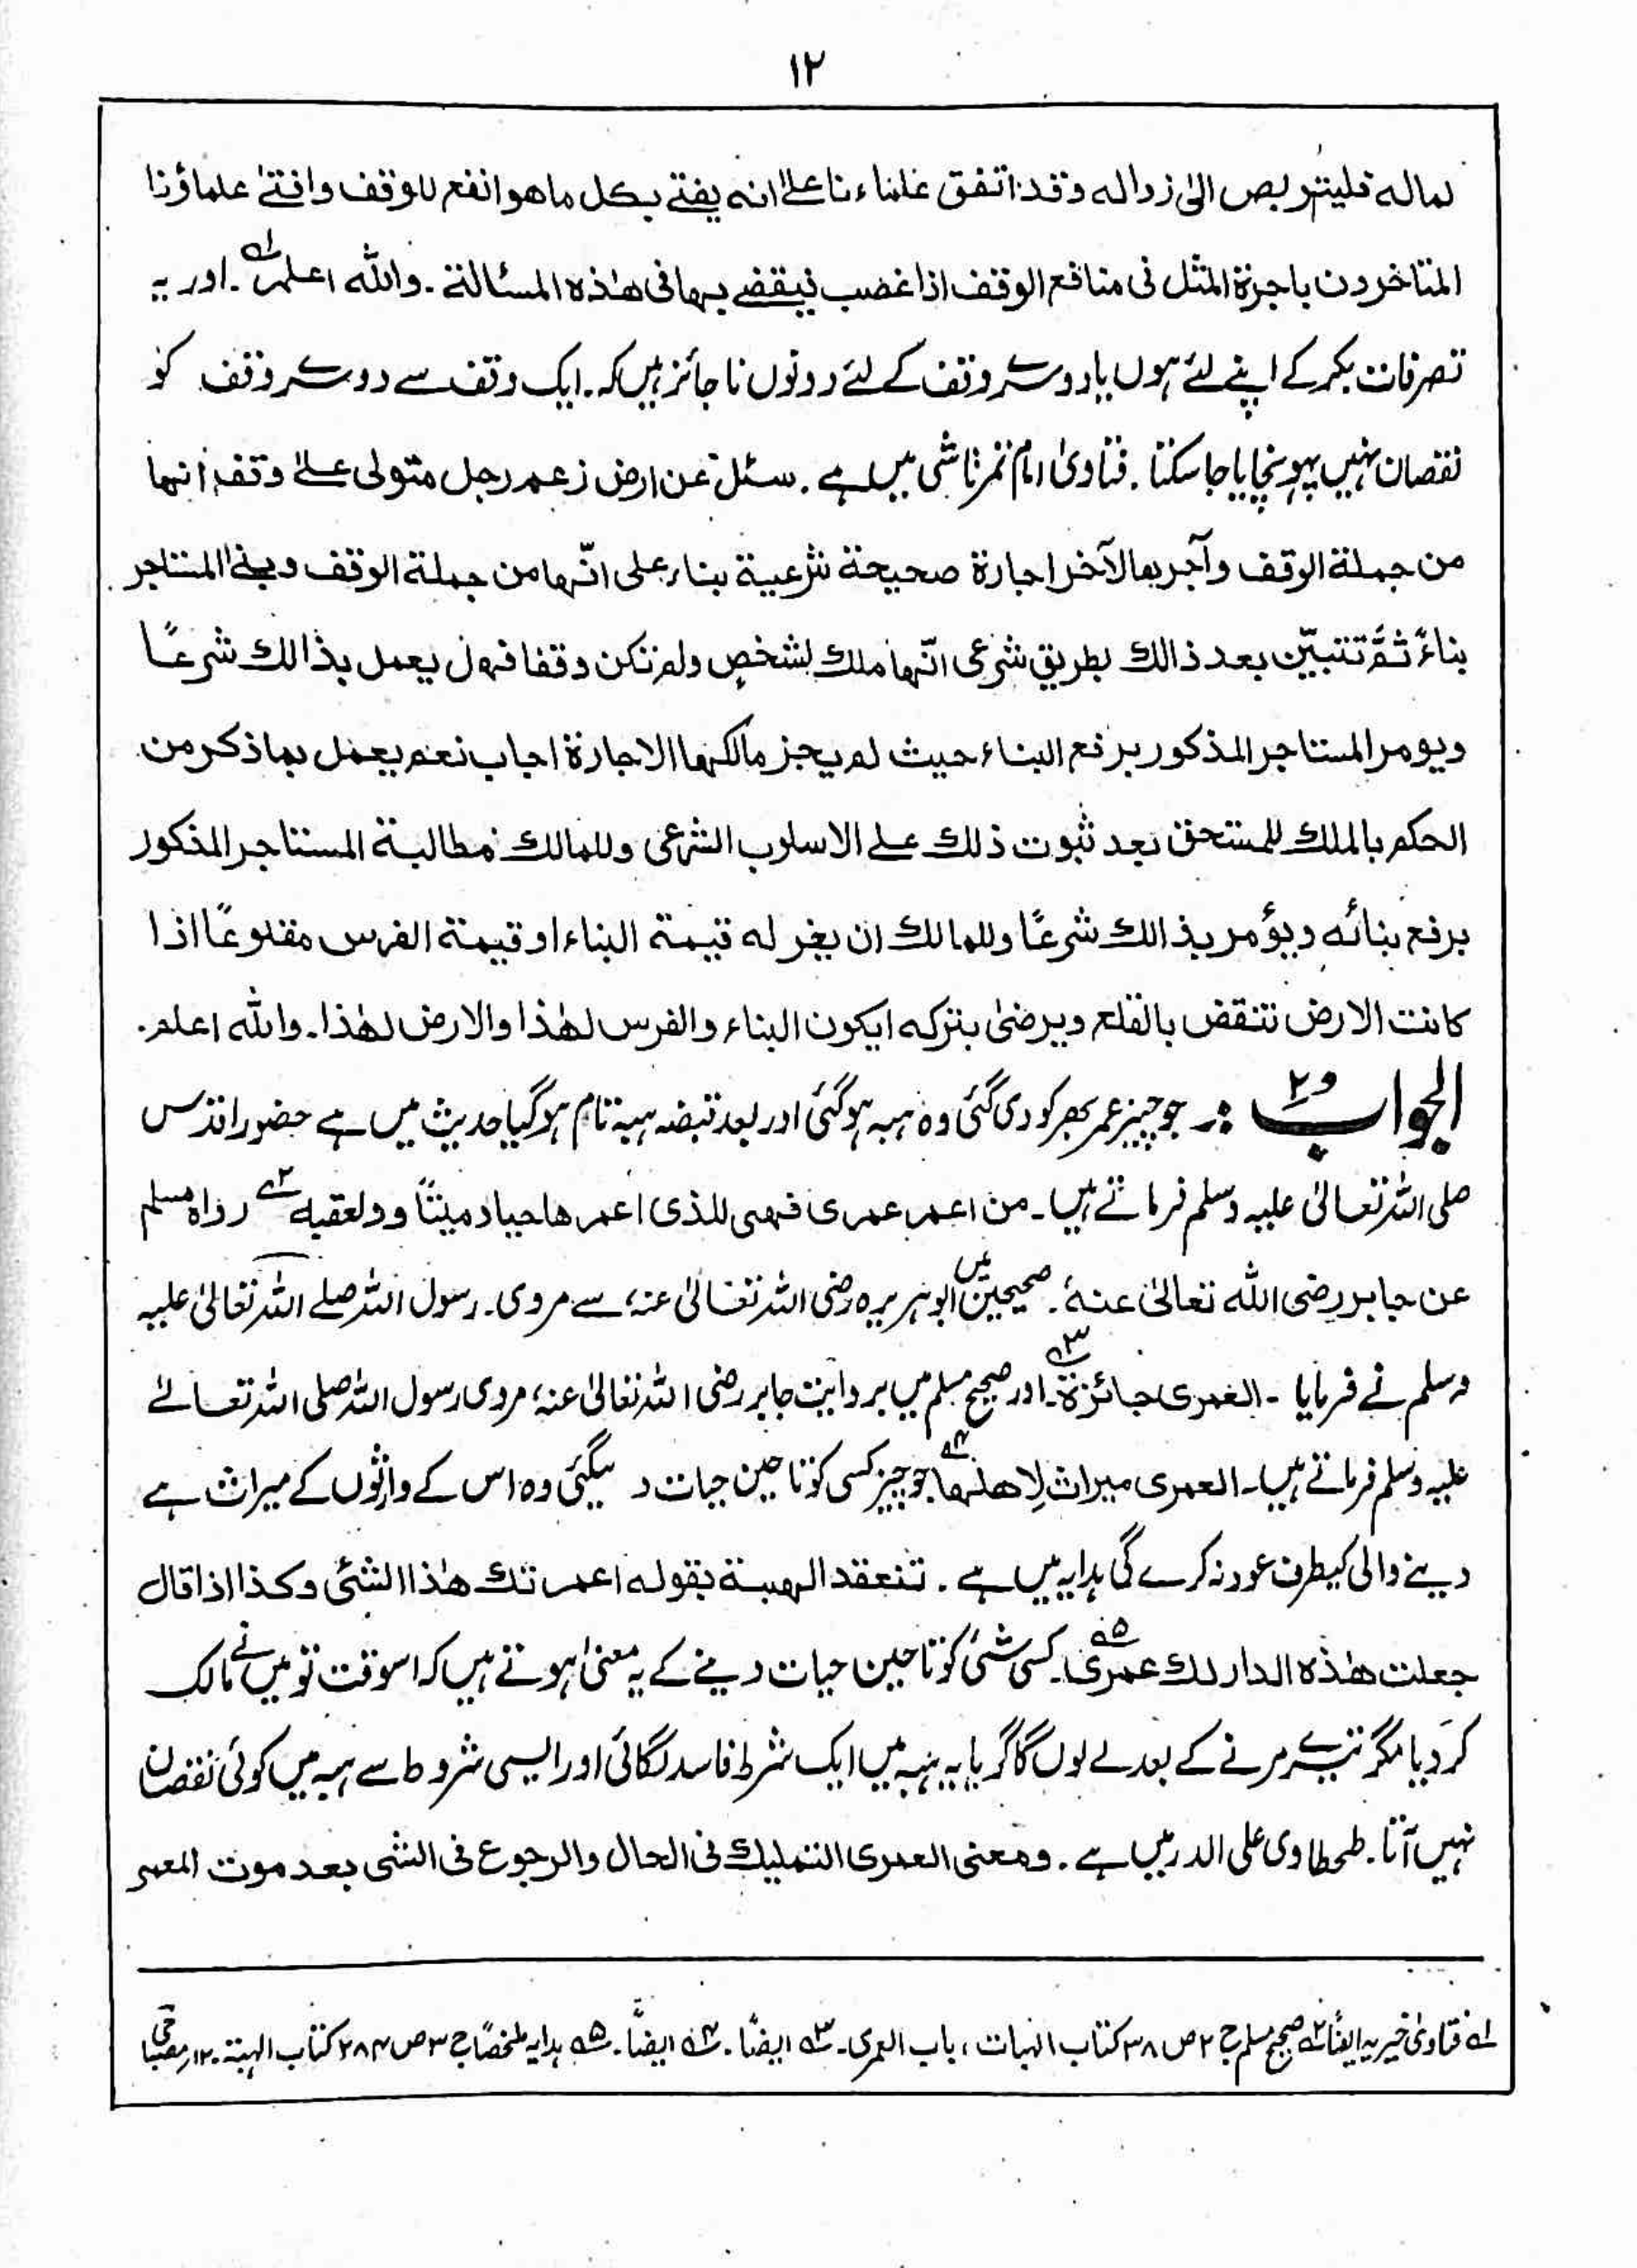 ۱۲
لماله فليتربص الىٰ زواله وقد اتفق علماءنا علیٰ انه يفتے بكل ما هو انفع للوقف وافتیٰ علماؤنا
المتاخرون باجرة المثل فى منافع الوقف اذا غصب فيقضے بها فى هٰذه المسئالة ۔ والله اعلم لہ ۔ اور یہ
تصرفات بکر کے اپنے لئے ہوں یا دوسرے وقف کے لئے دونوں ناجائز ہیں کہ ۔ ایک وقف سے دوسرے وقف کو
نقصان نہیں پہونچایا جاسکتا ۔ فتاویٰ امام تمرتاشی میں ہے ۔ سئل عن ارض زعم رجل متولى علیٰ وقف انها
من جملة الوقف وآجرها لآخر اجارة صحيحة شرعية بناء على انّها من جملة الوقف وبنیٰ المستاجر
بناءً ثمَّ تتبيّن بعد ذالك بطريق شرعى انّها ملك لشخصٍ ولم تكن وقفا فهل يعمل بذالك شرعًا
ويومر المستاجر المذكور برفع البناء حيث لم يجز مالكها الاجارة اجاب نعم يعمل بما ذكر من
الحكم بالملك للمستحق بعد ثبوت ذلك على الاسلوب الشرعى وللمالك مطالبة المستاجر المذكور
برفع بنائه ويؤمر بذالك شرعًا وللمالك ان يغر له قيمة البناء او قيمة الفرس مقلوعًا اذا
كانت الارض تنقض بالقلع ويرضیٰ بتركه ايكون البناء والفرس لهٰذا والارض لهٰذا ۔ والله اعلم ۔
الجواب و۲ :۔ جو چیز عمر بھر کو دی گئی وہ ہبہ ہوگئی اور بعد قبضہ ہبہ تام ہوگیا حدیث میں ہے حضور اقدس
صلی اللہ تعالیٰ علیہ وسلم فرماتے ہیں ۔ من اعمر عمرى فهى للذى اعمرها حيا وميتًا وولعقبه ۲ہ رواہ مسلم
عن جابر رضى الله تعالیٰ عنهٗ ۔ صحیحین میں ابوہریرہ رضی اللہ تعالیٰ عنہ، سے مروی ۔ رسول اللہ صلے اللہ تعالیٰ علیہ
وسلم نے فرمایا ۔ العمرى جائزة ۳ہ ۔ اور صحیح مسلم میں بروایت جابر رضی اللہ تعالیٰ عنہ، مروی رسول اللہ صلی اللہ تعالےٰ
علیہ وسلم فرماتے ہیں ۔ العمرى ميراث لِاهلها ۴ہ جو چیز کسی کو تا حین حیات دیگئی وہ اس کے وارثوں کے میراث ہے
دینے والی کیطرف عود نہ کرے گی ہدایہ میں ہے ۔ تنعقد الهبة بقوله اعمرتك هٰذا الشئى وكذا اذا قال
جعلت هٰذه الدار لك عمرىٰ ۵ہ ۔ کسی شئی کو تا حین حیات دینے کے یہ معنیٰ ہوتے ہیں کہ اسوقت تو میں نے مالک
کردیا مگر تیرے مرنے کے بعد لے لوں گا گر یا یہ ہبہ میں ایک شرط فاسد لگائی اور ایسی شروط سے ہبہ میں کوئی نقصان
نہیں آتا ۔ طحطاوی علی الدر میں ہے ۔ ومعنى العمرى التمليك فى الحال والرجوع فى الشى بعد موت المعمر
۱ہ فتاویٰ خیریہ ایضًا ۲ہ صحیح مسلم ج ۲ ص ۳۸ کتاب الہبات ، باب العمری ۔ ۳ہ ایضًا ۔ ۴ہ ایضًا ۔ ۵ہ ہدایہ ملخصًا ج ۳ ص ۲۸۴ کتاب الہبۃ ۔ ۱۲ مصباحی